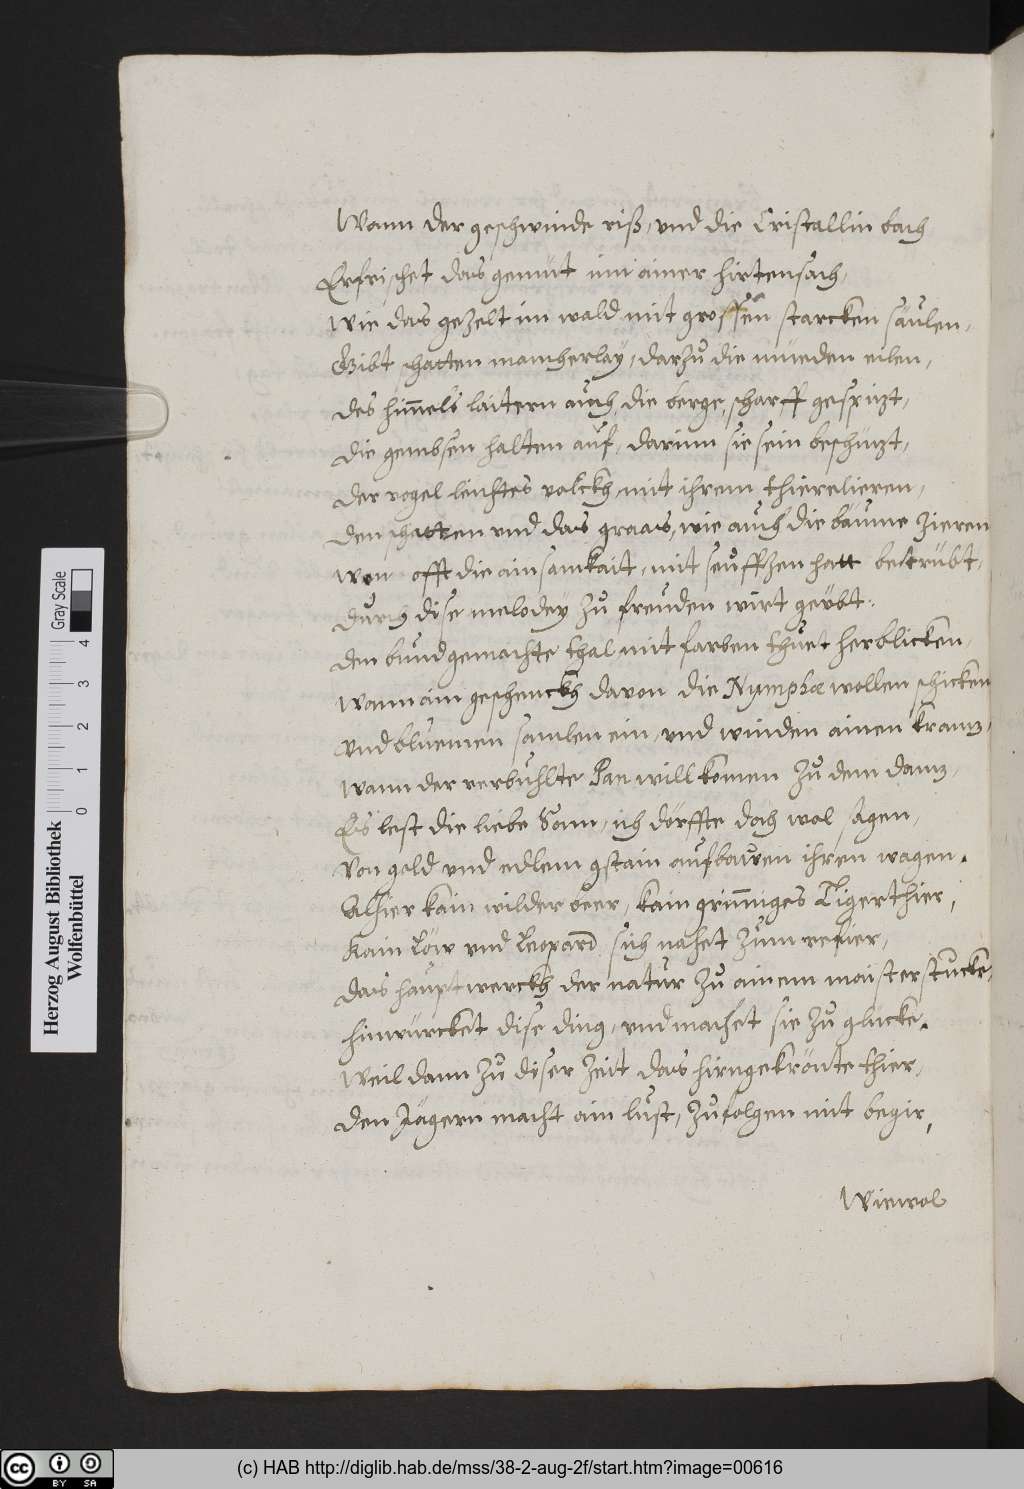 Wann der geschwinde riß, und die Cristallin bach
Erfrischet das gemüt im ainer hirtensach,
Wie das gezelt im wald mit grossen starcken säulen,
Gibt schatten mancherlay, darzu die müeden eilen,
des himels laitern auch die berge, scharff gespizt,
die gembsen halten auf, darinn sie sein beschüzt,
der vogel leichtes volckh, mit ihrem thierelieren,
den schatten und das graas, wie auch die bäume zieren
wen offt die ainsamkait, mit seuffzen hatt betrübt,
durch dise melodey zu freuden wirt geübt.
den bundgemachte thal mit farben thuet herblicken,
wann ain geschenckh davon die Nymphæ wollen schicken
und bluemen samlen ein, und winden ainen kranz,
wann der verbuhlte Pan will komen zu dem danz,
Es lest die liebe Sonn, ich dörffte doch wol sagen,
von gold und edlem gstain aufbawen ihren wagen.
Alhier kain wilder beer, kain grimiges Tigerthier,
kain Löw und Leopard sich nahet zum refier,
das hauptwerckh der natur zu ainem maisterstucke,
hinwürcket dise ding, und machet sie zu glucke.
Weil dann zu diser zeit das hirngekrönte thier,
den Jägern macht ain lust, zufolgen mit begir,
Wiewol
Herzog August Bibliothek
Wolfenbüttel
0 1 2 3 4
Gray Scale
(c) HAB http://diglib.hab.de/mss/38-2-aug-2f/start.htm?image=00616
cc BY SA